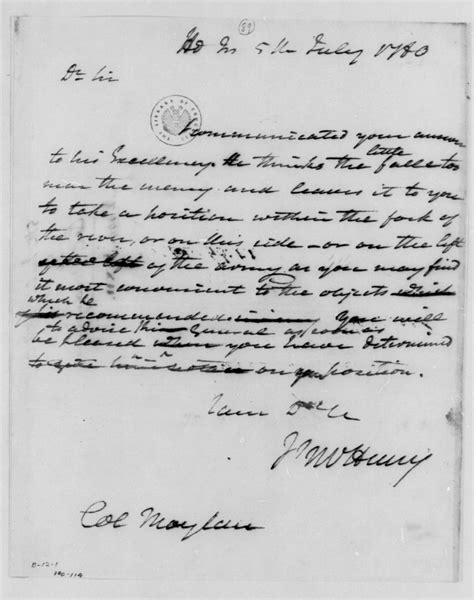 59
Hd Qrs 5th July 1780
Dr Sir
I communicated your answer
to his Excellency. He thinks the falls too
little
near the enemy and leaves it to you
to take a position within the fork of
the river, or on this side - or on the left
of the army as you may find
it most convenient to the objects which
which he
recommended. You will
to advise the General as soon as
be pleased when you have determined
to give him notice on your position.
I am Dr Sir
J McHenry
Col Moylan
D-12-1
190-114